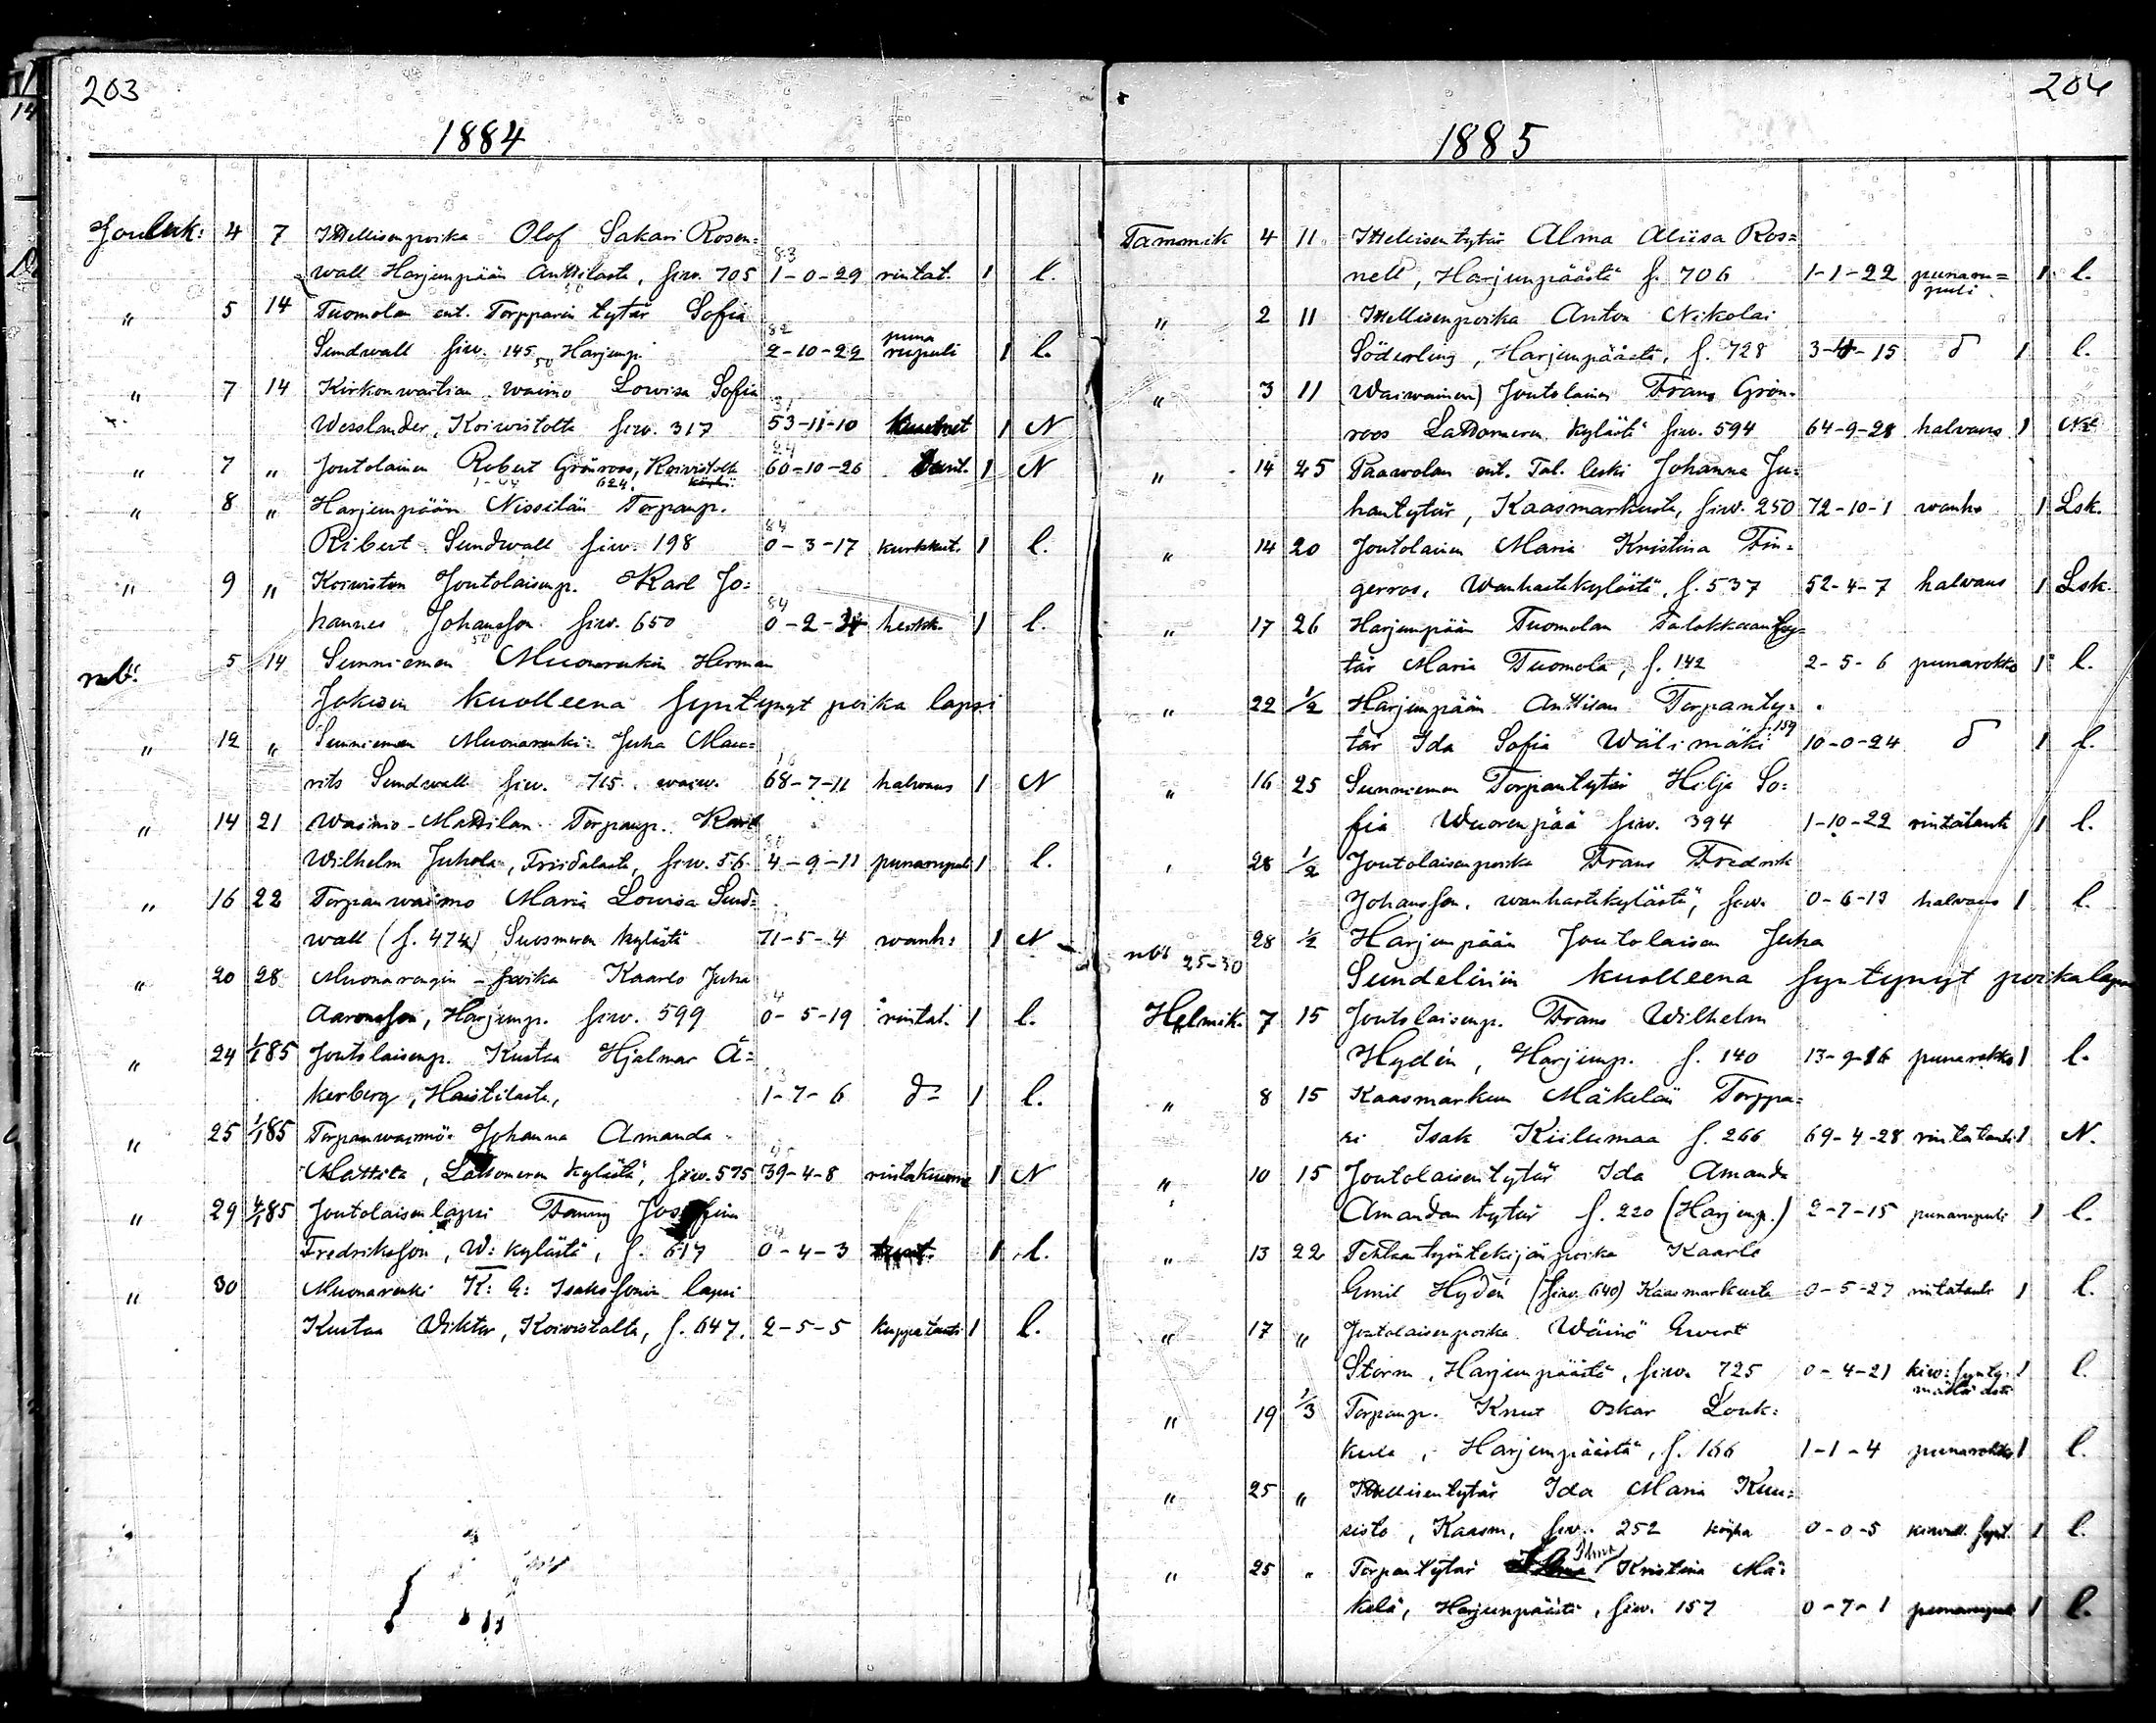 203
1884
Jouluk: 4 7 Ittellisenpoika Olof Sakari Rosen=
83
wall Harjunpään Anttilasta, siw. 705 1-0-29 rintat. 1 l.
" 5 14 Tuomolan ent. Torpparin tytär Sofia
82 puna
Sundwall siw. 145 Harjunp. 2-10-22 rupuli 1 l.
" 7 14 Kirkonwartian waimo Lowisa Sofia
31
Wesslander, Koiwistolta siw. 317 53-11-10 1 N
24
" 7 " Joutolainen Robert Grönroos, Koiwistolta 60-10-26 1 N
624.
" 8 " Harjunpään Nissilän Torpanp.
84
Robert Sundwall siw. 198 0-3-17 kurkkut. 1 l.
" 9 " Koiwiston Joutolaisenp. Karl Jo=
84
hannes Johansson siw. 650 0-2- heikk. 1 l.
nb: 5 14 Sunniemen Muonarenkin Herman
Jokisen kuolleena syntynyt poika lapsi
" 12 " Sunniemen Muonarenki: Juha Mau=
16
rits Sundwall siw. 715 waiw. 68-7-11 halwaus 1 N
" 14 21 Wainio-Mattilan Torpanp. Karl
80
Wilhelm Juhola, Friidalasta, siw. 56 4-9-11 punarupuli 1 l.
" 16 22 Torpanwaimo Maria Lowisa Sund=
13
wall (s. 474) Suosmeren kylästä 71-5-4 wanh: 1 N
" 20 28 Muonarengin poika Kaarlo Juha
84
Aaronsson, Harjunp. siw. 599 0-5-19 rintat. 1 l.
" 24 1/1 85 Joutolaisenp. Kustaa Hjalmar Å=
83
kerberg, Haistilasta, 1-7-6 d= 1 l.
" 25 1/1 85 Torpanwaimo Johanna Amanda
45
Mattila, Lattomeren kylästä, siw. 575 39-4-8 rintakuume 1 N
" 29 4/1 85 Joutolaisenlapsi Fanny Josefina
84
Fredriksson, W: kylästä, s. 617 0-4-3 1 l.
" 30 Muonarenki K: G: Isakssonin lapsi
Kustaa Viktor, Koiwistolta, s. 647. 2-5-5 kuppatauti 1 l.
204
1885
Tammik 4 11 Ittellisentytär Alma Aliisa Ros=
nell, Harjunpäästä s. 706 1-1-22 punaru= 1 l.
puli
" 2 11 Ittellisenpoika Anton Nikolai
Söderling, Harjunpäästä, s. 728 3-4-15 d 1 l.
" 3 11 Waiwainen) Joutolainen Frans Grön=
roos Lattomeren kylästä siw. 594 64-9-28 halwaus 1
" 14 25 Paawolan ent. Tal. leski Johanna Ju=
hantytär, Kaasmarkusta, siw. 250 72-10-1 wanh. 1 Lsk.
" 14 20 Joutolainen Maria Kristina Fin=
gerroos, Wanhastakylästä, s. 537 52-4-7 halwaus 1 Lsk.
" 17 26 Harjunpään Tuomolan Talokkaan ty=
tär Maria Tuomola, s. 142 2-5-6 punarokko 1 l.
" 22 1/2 Harjunpään Anttilan Torpanty=
tär Ida Sofia Wälimäki s. 159 10-0-24 d 1 l.
" 16 25 Sunniemen Torpantytär Hilja So=
fia Wuorenpää siw. 394 1-10-22 rintatauti 1 l.
" 28 1/2 Joutolaisenpoika Frans Fredrik
Johansson, wanhastakylästä, siw. 0-6-13 halwaus 1 l.
nb: 28 1/2 Harjunpään Joutolaisen Juha
25-30
Sundelinin kuolleena syntynyt poikalapsi
Helmik. 7 15 Joutolaisenp. Frans Wilhelm
Hydén, Harjunp. s. 140 13-9-16 punarokko 1 l.
" 8 15 Kaasmarkun Mäkelän Torppa=
ri Isak Kiilumaa s. 266 69-4-28 rintatauti 1 N.
" 10 15 Joutolaisentytär Ida Amanda
Amandan tytär s. 220 (Harjunp.) 2-7-15 punarupuli 1 l.
" 13 22 Tehtaantyöntekijänpoika Kaarlo
Emil Hydén (siw. 640) Kaasmarkusta 0-5-27 rintatauti 1 l.
" 17 " Joutolaisenpoika Wäinö Ewert
Storm, Harjunpäästä, siw. 725 0-4-21 kiw: synty= 1 l.
" 19 1/3 Torpanp. Knut Oskar Louk=
kula, Harjunpäästä, s. 166 1-1-4 punarokko 1 l.
" 25 " Ittellisentytär Ida Maria Kuu=
sisto, Kaasm, siw. 252 0-0-5 1 l.
" 25 " Torpantytär Ilma Kristina Mä=
kelä, Harjunpäästä, siw. 157 0-7-1 punarupuli 1 l.